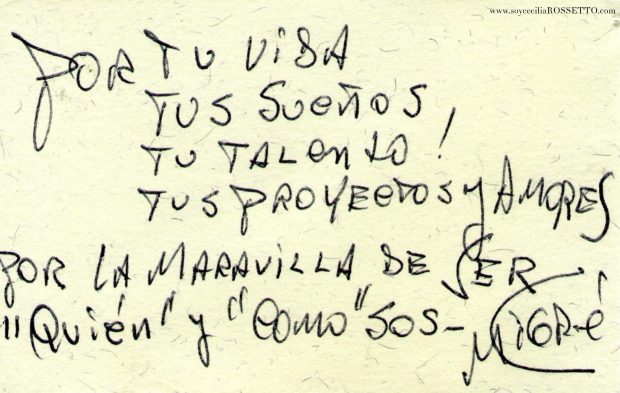 www.soyceciliaROSSETTO.com
POR TU VIDA
TUS SUEÑOS,
TU TALENTO!
TUS PROYECTOS Y AMORES
POR LA MARAVILLA DE SER
"Quién" y "COMO" SOS-
MIGRÉ